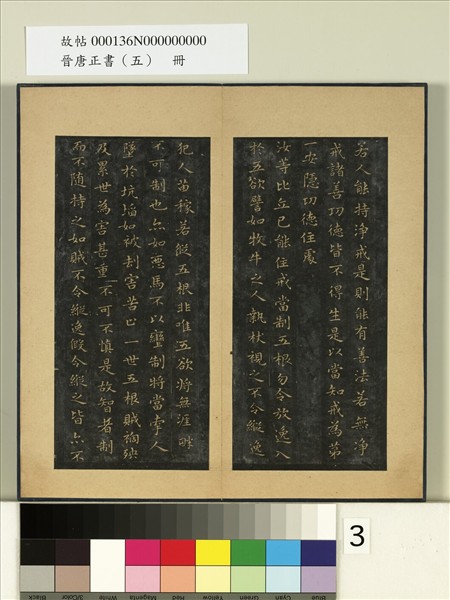 故帖 000136N000000000
晉唐正書（五）　冊
若人能持淨戒是則能有善法若無淨
戒諸善功德皆不得生是以當知戒為第
一安隱功德住處
汝等比丘已能住戒當制五根勿令放逸入
於五欲譬如牧牛之人執杖視之不令縱逸
犯人苗稼若縱五根非唯五欲將無涯畔
不可制也亦如惡馬不以轡制將當牽人
墜於坑埳如被劫害苦止一世五根賊禍殃
及累世為害甚重不可不慎是故智者制
而不隨持之如賊不令縱逸假令縱之皆亦不
3
Black
3/Color
White
Magenta
Red
Yellow
Green
Cyan
Blue